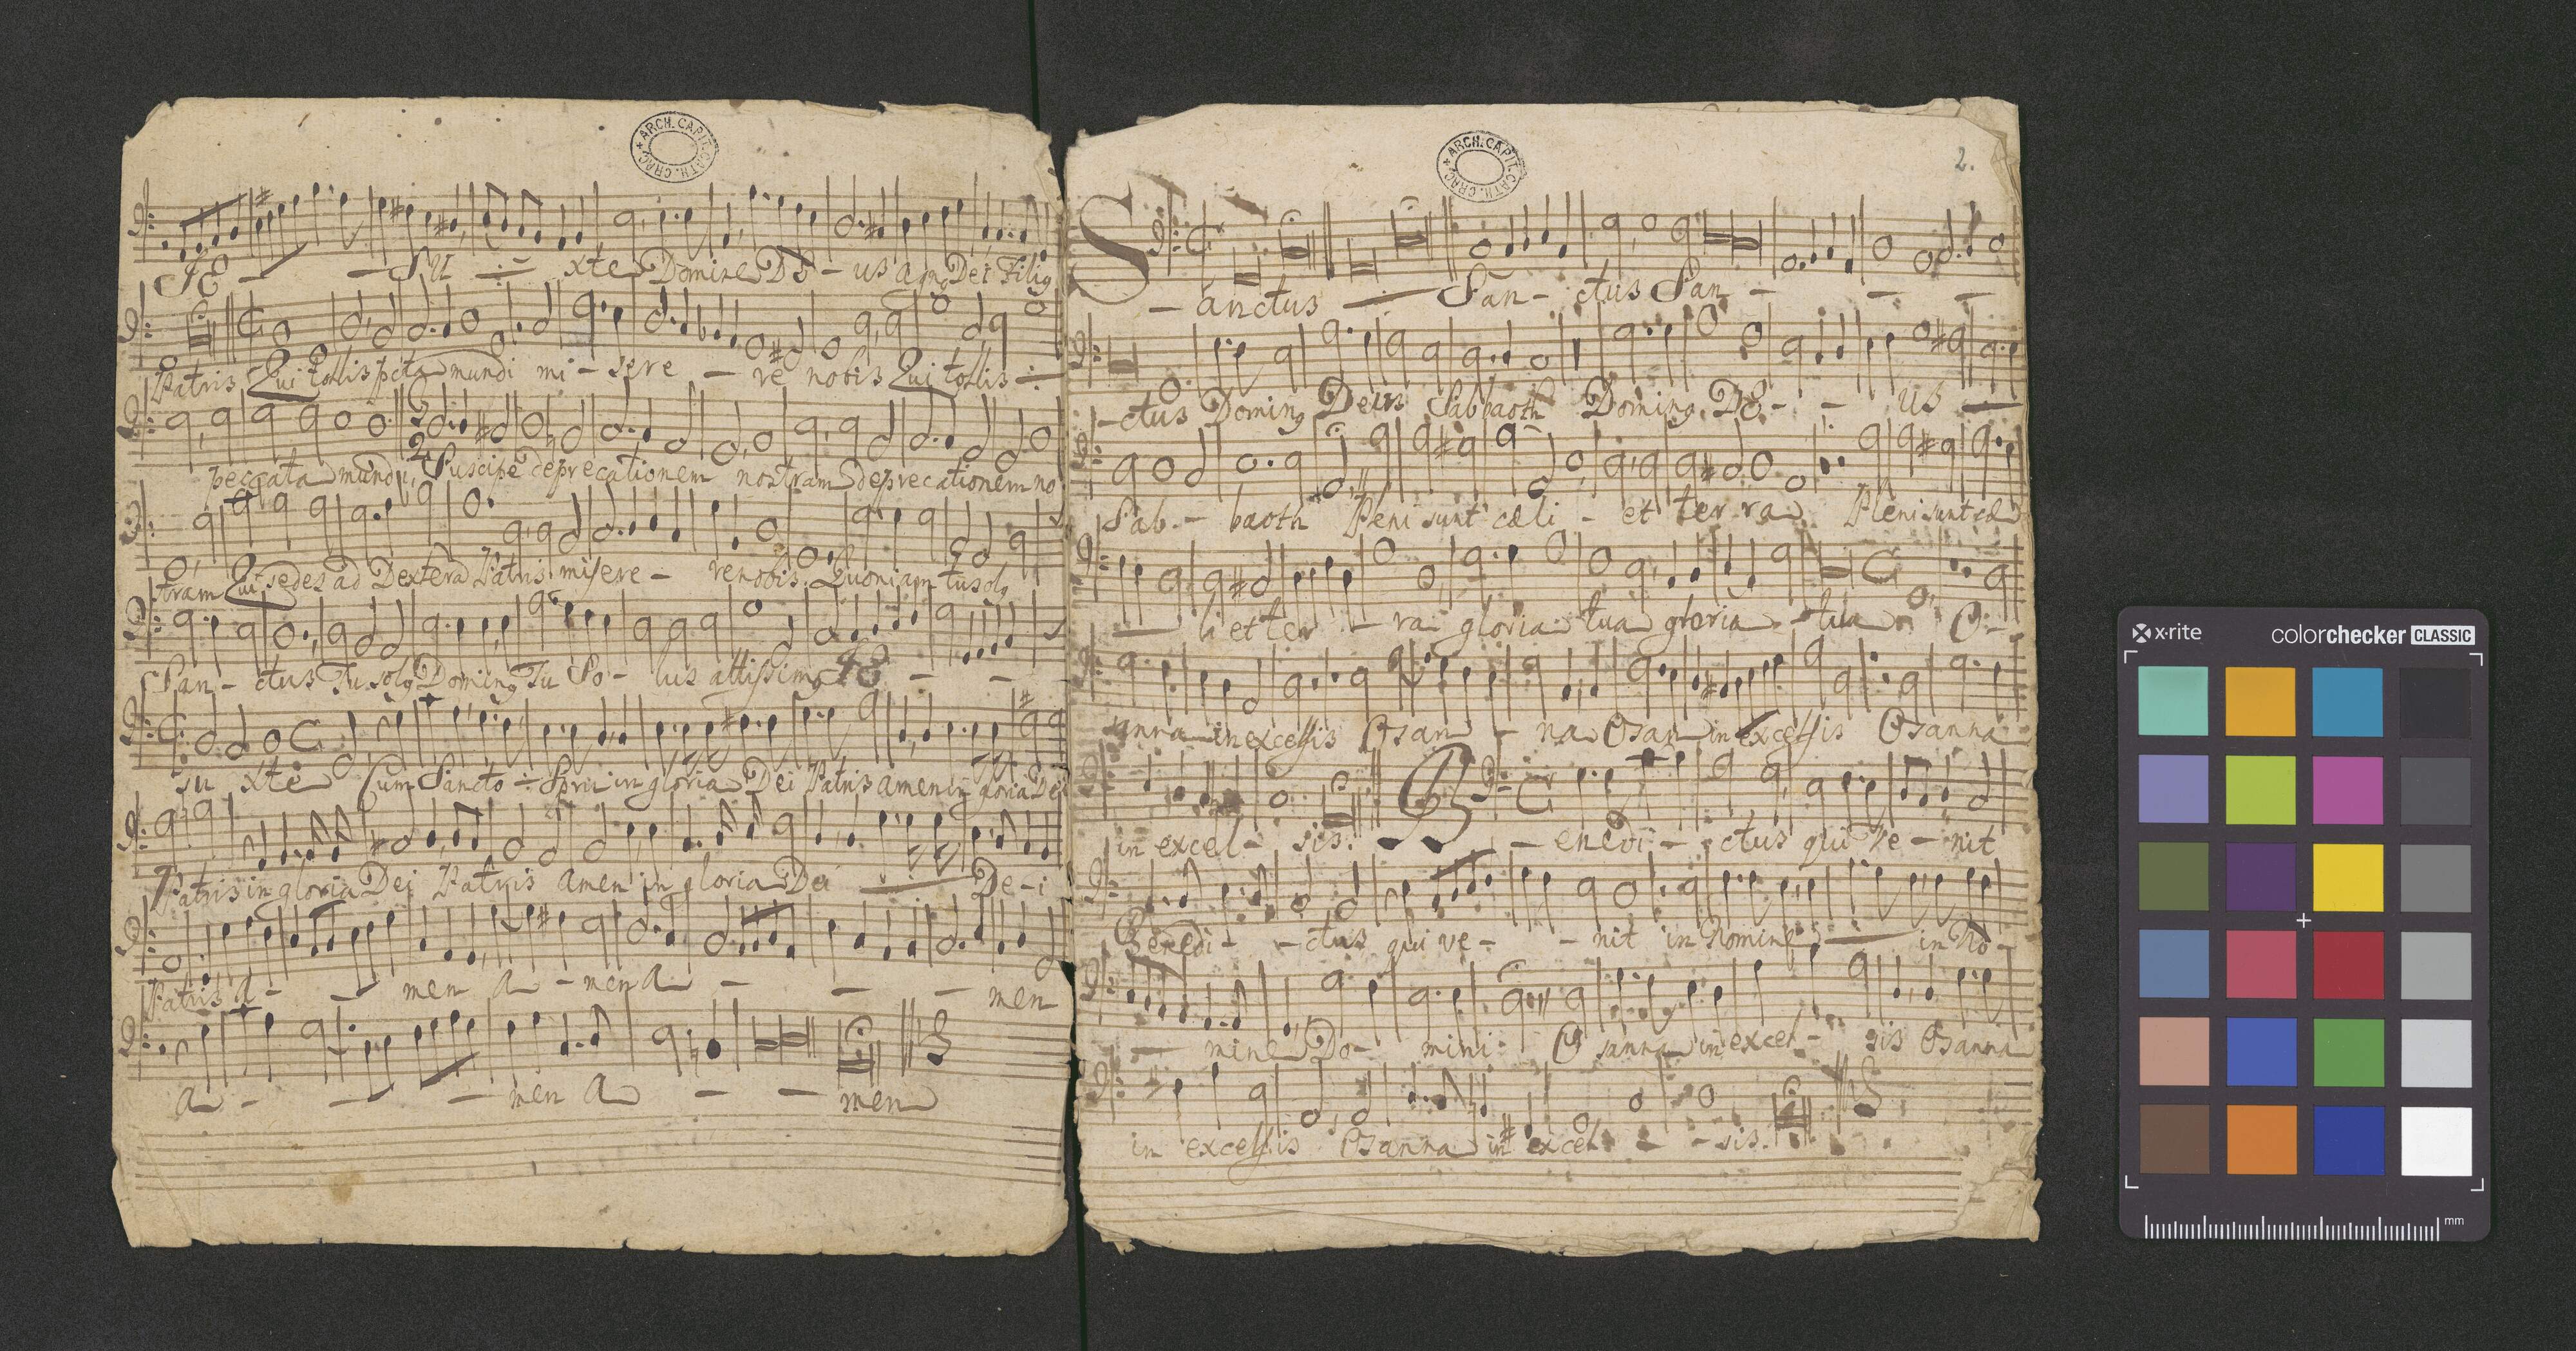 ARCH. CAPIT. CATH. CRAC.
JE - - SU ·/· xte Domine De - us agn9 Dei Filig
Patris Qui tollis pcta mundi mi - sere - re nobis Qui tollis ·/·
peccata mundi, Suscipe deprecationem nostram deprecationem no
stram Qui sedes ad Dextera Patris misere - re nobis. Quoniam tu sol9
San - ctus Tu sol9 Domin9 Tu So - lus altissim9 JE - -
su xte Cum Sancto ·/· Spru in gloria Dei Patris amen in gloria Dei
Patris in gloria Dei Patris amen in gloria Dei — De - i
Patris A - - men a - men a - - - men
a - - - men a - - men
ARCH. CAPIT. CATH. CRAC.
2.
S - anctus — San - ctus San - - -
- ctus Domin9 Deus Sabbaoth Domin9 DE - - US —
Sab - baoth Pleni sunt cæli - et terra Pleni sunt cæ
— li et ter - ra gloria tua gloria tua O -
sanna in excelsis Osan - na Osan in excelsis Osanna
in excel - sis. B - enedi - ctus qui ve - nit
Benedi - - ctus qui ve - - nit in Nomine — in No -
— mine Do - mini O sanna in excel - sis Osanna
in excelsis Osanna in excel - - sis.
x-rite colorchecker CLASSIC
mm